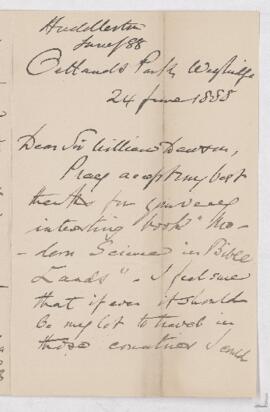 Huddleston
June/88
Oatlands Park, Weybridge
24 June 1888
Dear Sir William Dawson,
Pray accept my best
thanks for your very
interesting book "Mo-
dern Science in Bible
Lands" - I feel sure
that if ever it should
be my lot to travel in
those countries I could